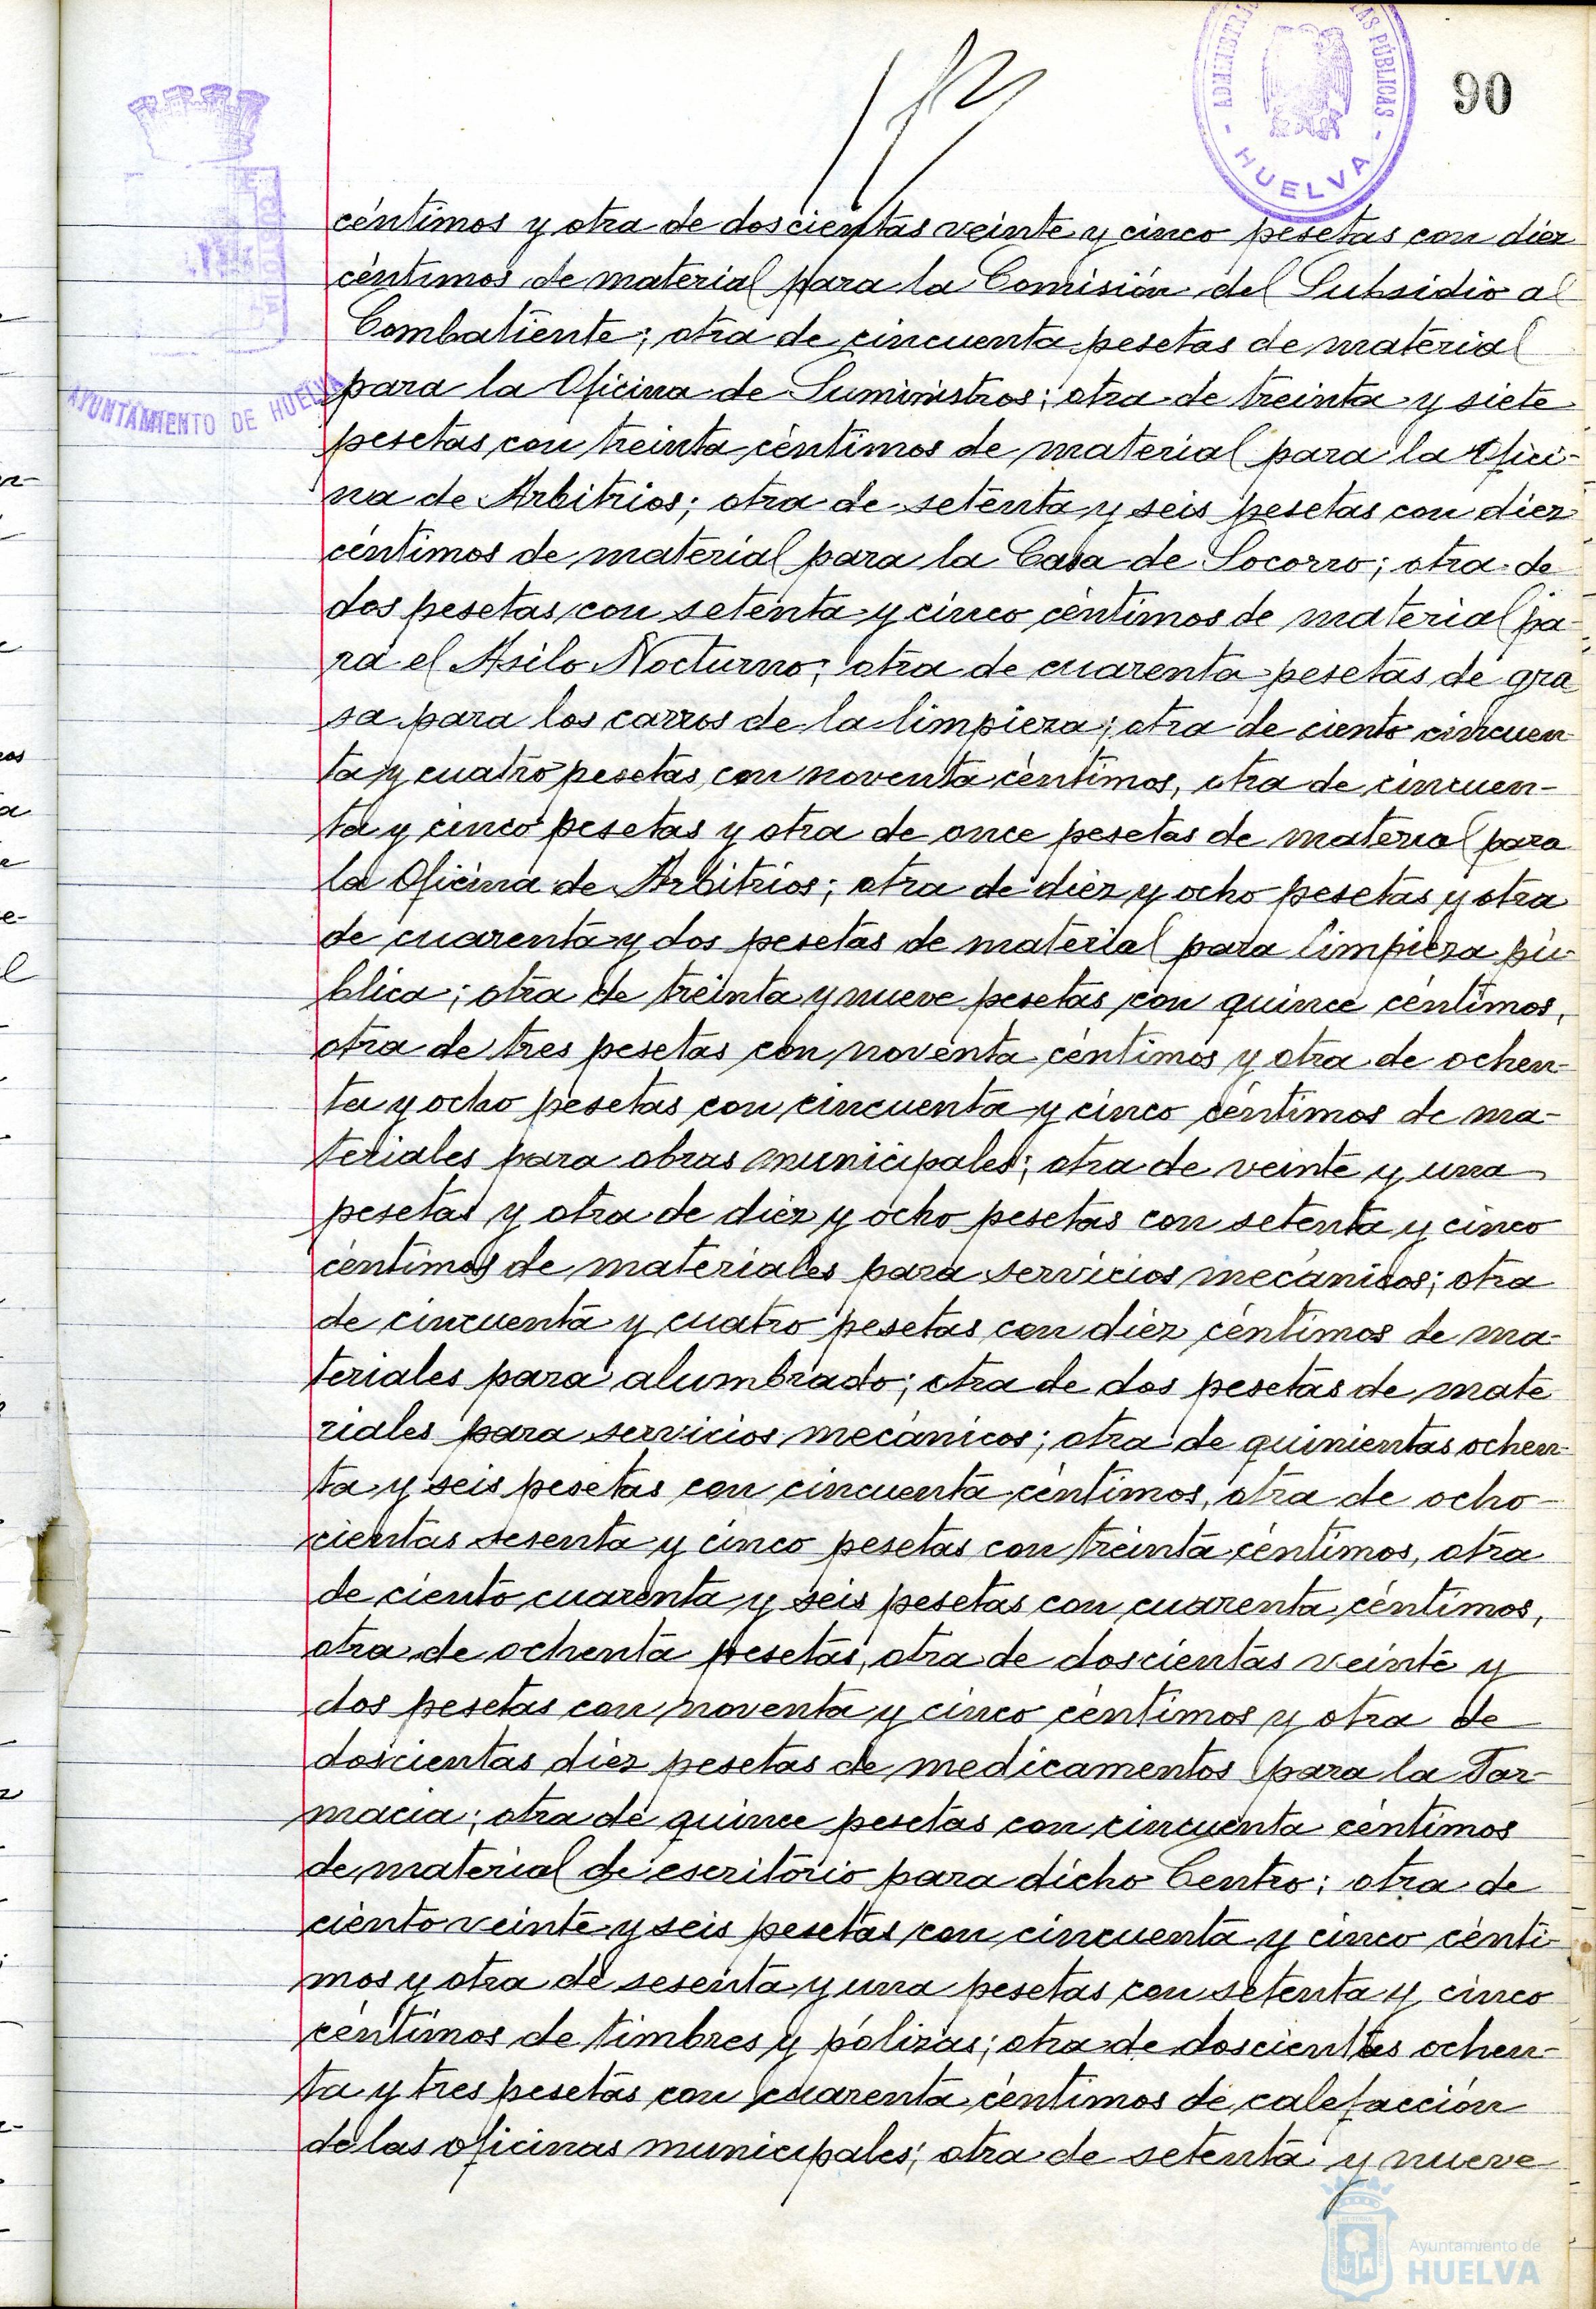 90
ADMINISTR
AS PÚBLICAS
- HUELVA -
AYUNTAMIENTO DE HUELVA
céntimos y otra de doscientas veinte y cinco pesetas con diez
céntimos de material para la Comisión del Subsidio al
Combatiente; otra de cincuenta pesetas de material
para la Oficina de Suministros; otra de treinta y siete
pesetas con treinta céntimos de material para la Ofici-
na de Arbitrios; otra de setenta y seis pesetas con diez
céntimos de material para la Casa de Socorro; otra de
dos pesetas con setenta y cinco céntimos de material pa-
ra el Asilo Nocturno; otra de cuarenta pesetas de gra
sa para los carros de la limpieza; otra de ciento cincuen
ta y cuatro pesetas con noventa céntimos, otra de cincuen-
ta y cinco pesetas y otra de once pesetas de material para
la Oficina de Arbitrios; otra de diez y ocho pesetas y otra
de cuarenta y dos pesetas de material para limpieza pú-
blica; otra de treinta y nueve pesetas con quince céntimos,
otra de tres pesetas con noventa céntimos y otra de ochen-
ta y ocho pesetas con cincuenta y cinco céntimos de ma-
teriales para obras municipales; otra de veinte y una
pesetas y otra de diez y ocho pesetas con setenta y cinco
céntimos de materiales para servicios mecánicos; otra
de cincuenta y cuatro pesetas con diez céntimos de ma-
teriales para alumbrado; otra de dos pesetas de mate
riales para servicios mecánicos; otra de quinientas ochen-
ta y seis pesetas con cincuenta céntimos, otra de ocho-
cientas sesenta y cinco pesetas con treinta céntimos, otra
de ciento cuarenta y seis pesetas con cuarenta céntimos,
otra de ochenta pesetas, otra de doscientas veinte y
dos pesetas con noventa y cinco céntimos y otra de
doscientas diez pesetas de medicamentos para la Far-
macia; otra de quince pesetas con cincuenta céntimos
de material de escritorio para dicho Centro; otra de
ciento veinte y seis pesetas con cincuenta y cinco cénti-
mos y otra de sesenta y una pesetas con setenta y cinco
céntimos de timbres y pólizas; otra de doscientas ochen-
ta y tres pesetas con cuarenta céntimos de calefacción
de las oficinas municipales; otra de setenta y nueve
Ayuntamiento de
HUELVA